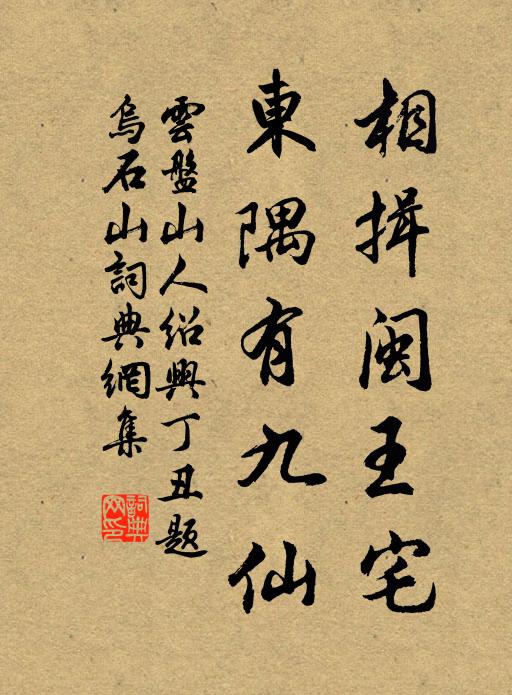 相揖闽王宅
東隅有九仙
雲盤山人绍興丁丑题
烏石山詞典網集
詞典
网印